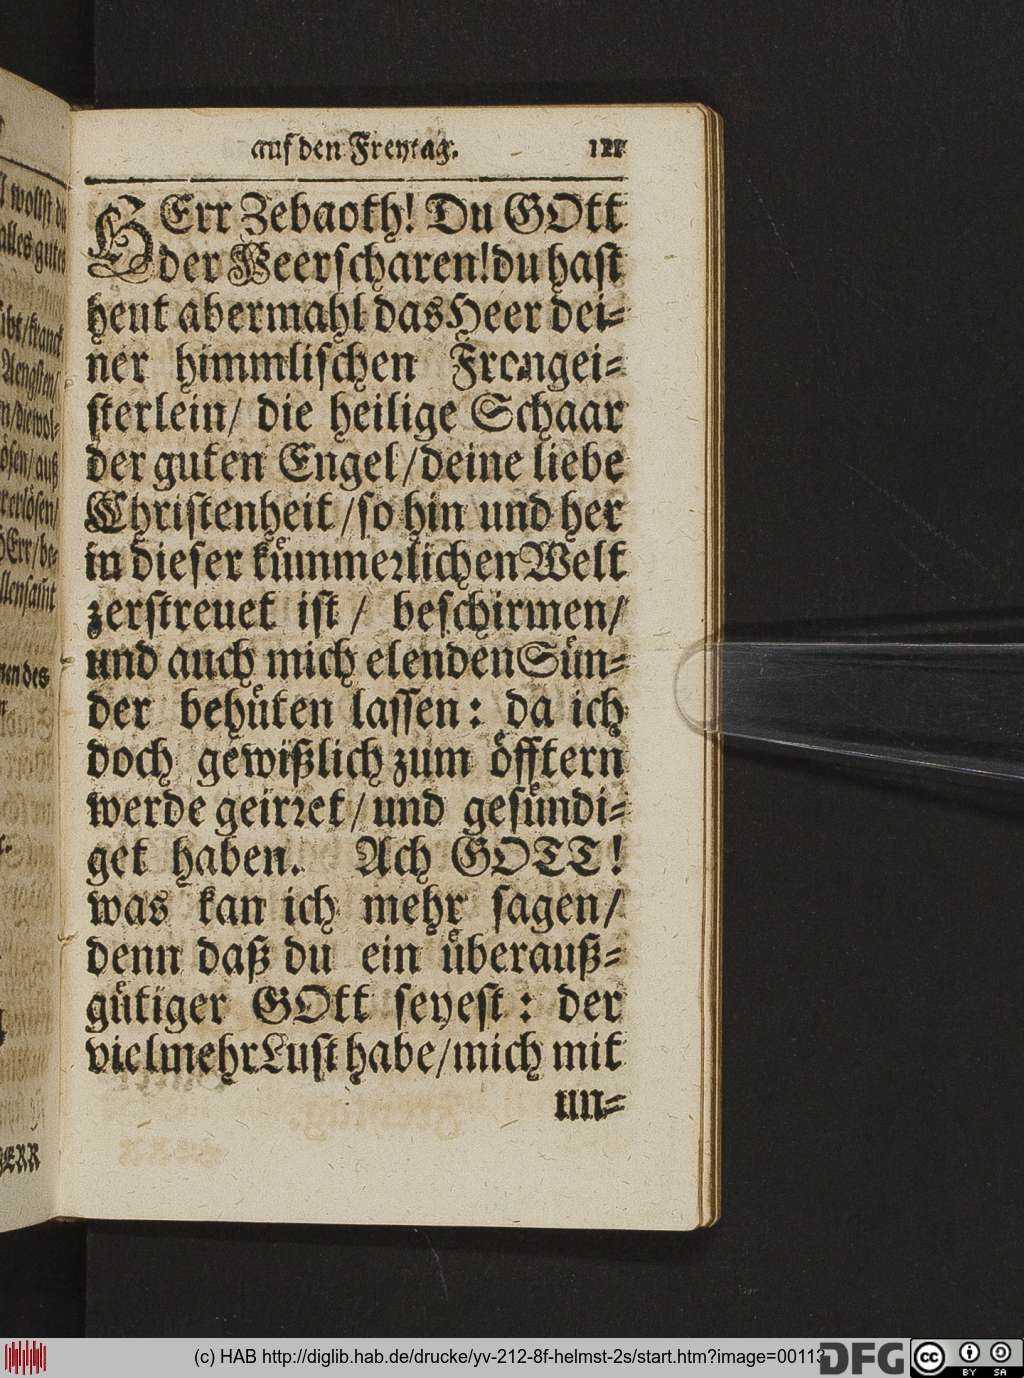 auf den Freytag. 111
HErr Zebaoth! Du GOtt
der Heerscharen! du hast
heut abermahl das Heer dei-
ner himmlischen Frongei-
sterlein/ die heilige Schaar
der guten Engel/ deine liebe
Christenheit/ so hin und her
in dieser kuͤmmerlichen Welt
zerstreuet ist/ beschirmen/
und auch mich elenden Suͤn-
der behuͤten lassen: da ich
doch gewißlich zum oͤfftern
werde geirret/ und gesuͤndi-
get haben. Ach GOTT!
was kan ich mehr sagen/
denn daß du ein uͤberauß-
guͤtiger GOtt seyest: der
vielmehr Lust habe/ mich mit
un-
wollst du
alles gutes
kranck
Aengsten/
auß
erlösen/
HErr/ be-
des
HERR
(c) HAB http://diglib.hab.de/drucke/yv-212-8f-helmst-2s/start.htm?image=00113
DFG
cc BY SA